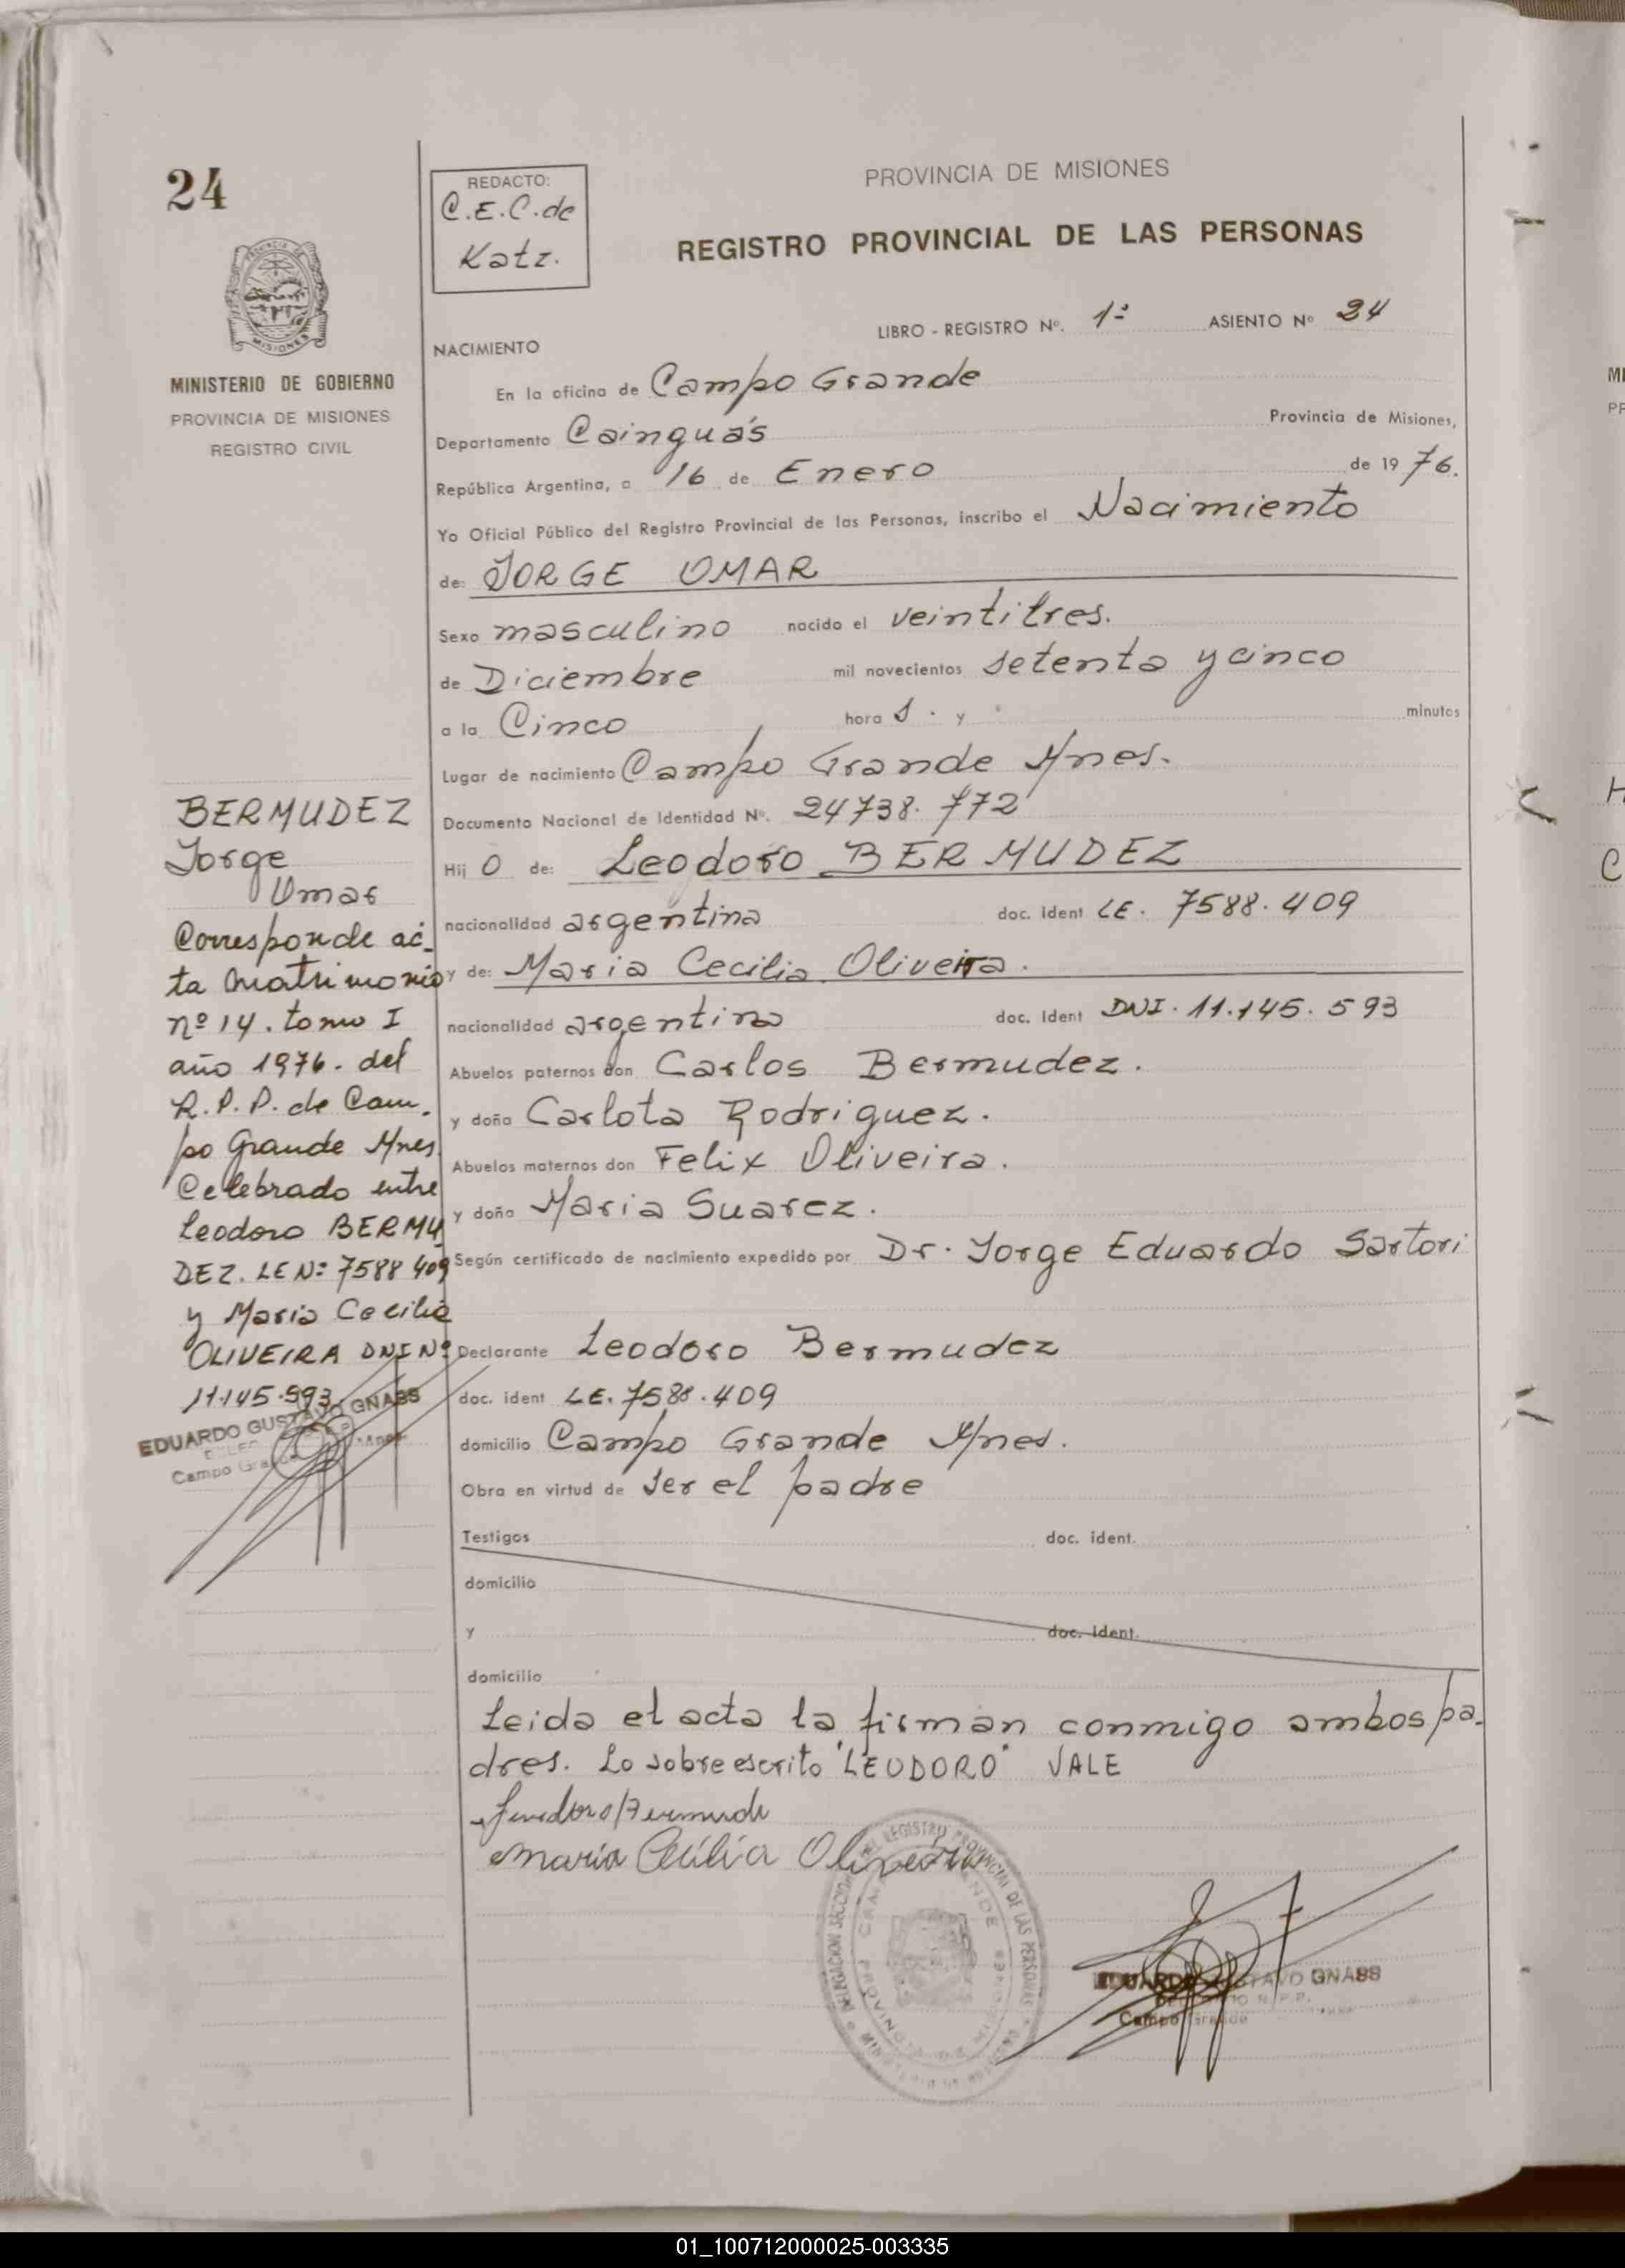 24
REDACTO:
C.E.C. de
Katz.
PROVINCIA DE MISIONES
REGISTRO PROVINCIAL DE LAS PERSONAS
LIBRO - REGISTRO Nº. 1º ASIENTO Nº 24
MISIONES
MINISTERIO DE GOBIERNO
PROVINCIA DE MISIONES
REGISTRO CIVIL
NACIMIENTO
En la oficina de Campo Grande
Departamento Cainguás Provincia de Misiones,
República Argentina, a 16 de Enero de 1976.
Yo Oficial Público del Registro Provincial de las Personas, inscribo el Nacimiento
de: JORGE OMAR
Sexo masculino nacido el veintitres.
de Diciembre mil novecientos setenta y cinco
a la Cinco hora s. y minutos
Lugar de nacimiento Campo Grande Mnes.
Documento Nacional de Identidad Nº. 24738.772
Hij o de: Leodoro BERMUDEZ
nacionalidad argentina doc. ident LE. 7588.409
y de: Maria Cecilia Oliveira.
nacionalidad argentina doc. ident DNI. 11.145.593
Abuelos paternos don Carlos Bermudez.
y doña Carlota Rodriguez.
Abuelos maternos don Felix Oliveira.
y doña Maria Suarez.
Según certificado de nacimiento expedido por Dr. Jorge Eduardo Sartori
Declarante Leodoro Bermudez
doc. ident LE. 7588.409
domicilio Campo Grande Mnes.
Obra en virtud de ser el padre
Testigos doc. ident.
domicilio
y doc. ident.
domicilio
Leida el acta la firman conmigo ambos pa-
dres. Lo sobre escrito "LEODORO" VALE
Maria Cecilia Oliveira
EDUARDO GUSTAVO GNASS
Campo Grande
BERMUDEZ
Jorge
Omar
Corresponde ac-
ta matrimonio
nº 14. tomo I
año 1976. del
R.P.P. de Cam-
po Grande Mnes.
Celebrado entre
Leodoro BERMU
DEZ. LE Nº 7588 409
y Maria Cecilia
OLIVEIRA DNI Nº
11.145.593
EDUARDO GUSTAVO GNASS
Campo Grande
01_100712000025-003335